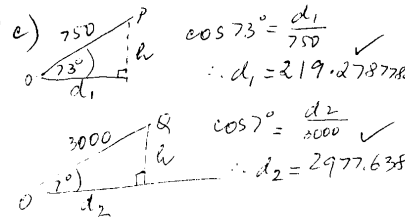 c) 750 P h 73° O d₁
cos 73° = d₁/750 ✓
∴ d₁ = 219.278778
3000 Q h 7° O d₂
cos 7° = d₂/3000 ✓
∴ d₂ = 2977.638